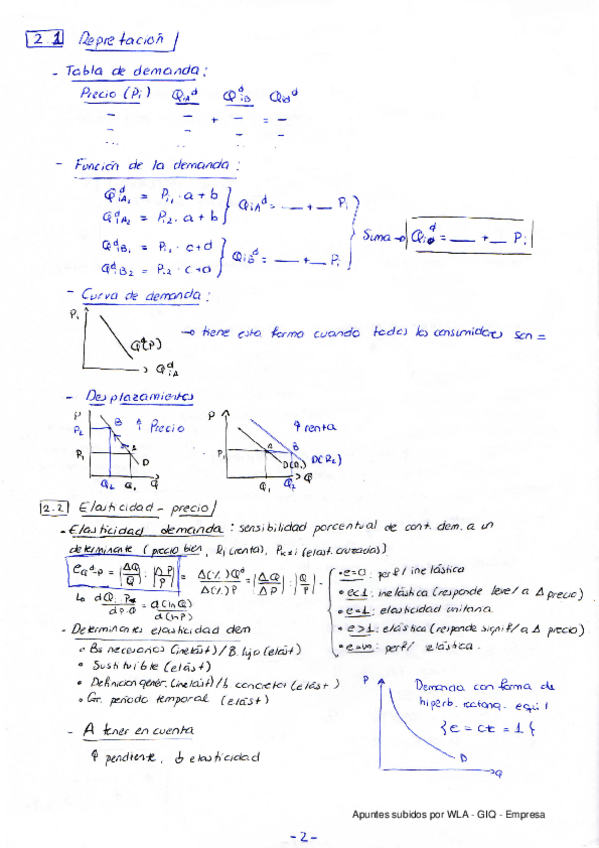 2.1 Representación
- Tabla de demanda:
Precio (Pi) QiA^d QiB^d Qid^d
- - + - = -
- - -
... ...
- Función de la demanda:
Q^d iA1 = Pi1 · a + b
Q^d iA2 = Pi2 · a + b
QiA^d = __ + __ Pi
Q^d iB1 = Pi1 · c + d
Q^d iB2 = Pi2 · c + d
QiB^d = __ + __ Pi
Suma → Qi^d = __ + __ Pi
- Curva de demanda:
Pi
Q(P)
Q^d iA
→ tiene esta forma cuando todos los consumidores son =
- Desplazamientos
P P2 P1 B A D Q2 Q1 Q
↑ Precio
P P1 A B D(R1) D(R2) Q1 Q2 Q
↑ renta
2.2 Elasticidad - precio
- Elasticidad demanda: sensibilidad porcentual de cant. dem. a un
determinante (precio bien, Ri (renta), Pk≠i (elast. cruzadas))
eQ^d-P = |ΔQ/Q| : |ΔP/P| = Δ(%)Q^d / Δ(%)P = |ΔQ/ΔP| : |Q/P|
↳ dQ · P / dP · Q = d(lnQ) / d(lnP)
• e=0: perf/ inelástica
• e<1: inelástica (responde leve/ a Δ precio)
• e=1: elasticidad unitaria
• e>1: elástica (responde signif/ a Δ precio)
• e=∞: perf/ elástica.
- Determinantes elasticidad dem
• Bs necesarios (inelást) / B. lujo (elást)
• Sustituible (elást)
• Definición génér. (inelást) / b concretos (elást)
• Gr. periodo temporal (elást)
- A tener en cuenta
↑ pendiente, ↓ elasticidad
P
D
Q
Demanda con forma de
hiperb. rectang. equil
{e = ct = 1}
Apuntes subidos por WLA - GIQ - Empresa
- 2 -